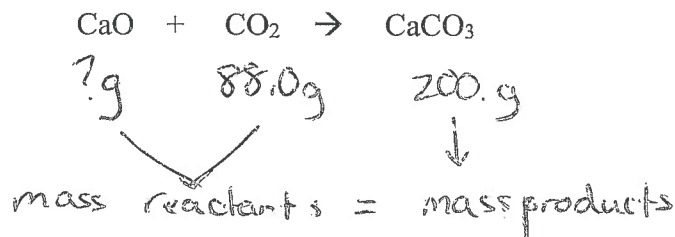 CaO + CO₂ → CaCO₃
?g 88.0g 200. g
mass reactants = mass products